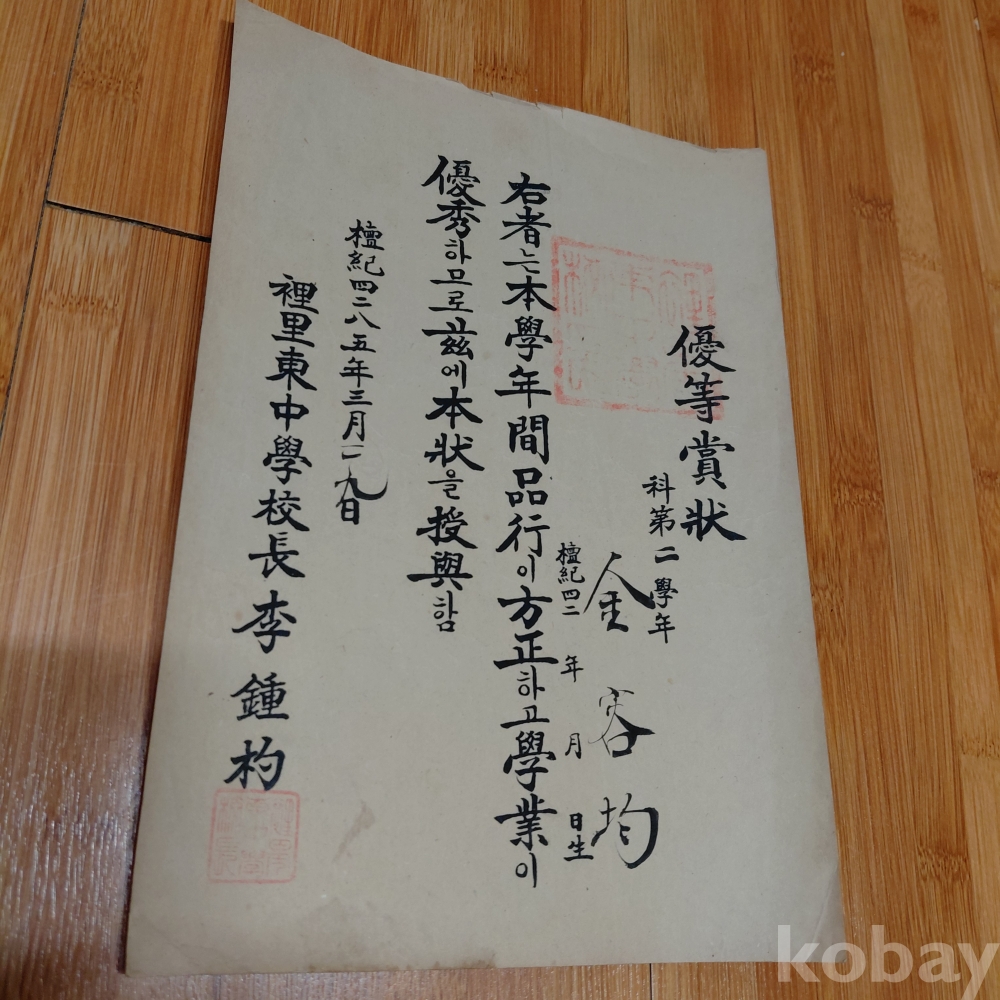 優等賞狀
科第二學年
金容均
檀紀四二 年 月 日生
右者는本學年間品行이方正하고學業이
優秀하므로玆에本狀을授與함
檀紀四二八五年三月二九日
裡里東中學校長 李鍾杓
kobay